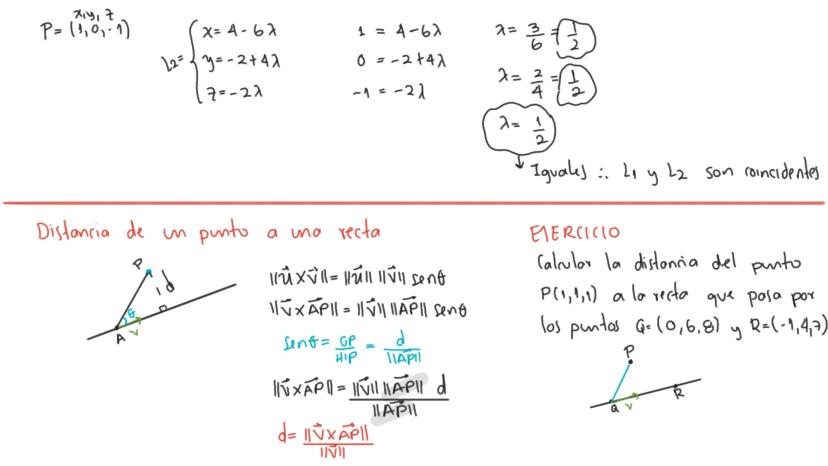 x, y, z
P = (1, 0, -1)
L2 = { x = 4 - 6λ
y = -2 + 4λ
z = -2λ
1 = 4 - 6λ
0 = -2 + 4λ
-1 = -2λ
λ = 3/6 = 1/2
λ = 2/4 = 1/2
λ = 1/2
Iguales ∴ L1 y L2 son coincidentes
Distancia de un punto a una recta
P
d
θ
A
V
||u⃗ x v⃗|| = ||u⃗|| ||v⃗|| senθ
||v⃗ x AP⃗|| = ||v⃗|| ||AP⃗|| senθ
senθ = CP/HIP = d/||AP⃗||
||v⃗ x AP⃗|| = ||v⃗|| ||AP⃗|| d / ||AP⃗||
d = ||v⃗ x AP⃗|| / ||v⃗||
EJERCICIO
Calcular la distancia del punto
P(1,1,1) a la recta que pasa por
los puntos Q = (0,6,8) y R = (-1,4,7)
P
Q
V
R